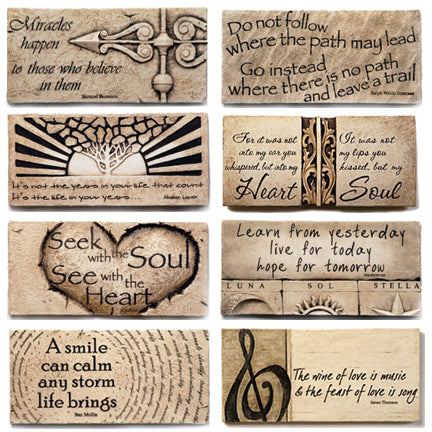 Miracles
happen
to those who believe
in them
Bernard Berenson
Do not follow
where the path may lead
Go instead
where there is no path
and leave a trail
Ralph Waldo Emerson
It's not the years in your life that count
It's the life in your years...
Abraham Lincoln
For it was not
into my ear you
whispered, but into my
Heart
It was not
my lips you
kissed, but my
Soul
Seek
with the Soul
See with the
Heart
Learn from yesterday
live for today
hope for tomorrow
LUNA SOL STELLA
A smile
can calm
any storm
life brings
The wine of love is music
& the feast of love is song
James Thomson